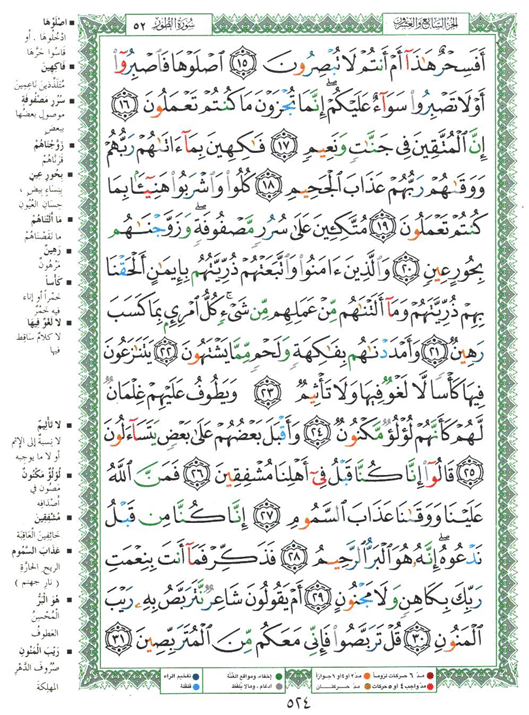 الجزء السابع والعشرون
سورة الطور ٥٢
أَفَسِحْرٌ هَٰذَآ أَمْ أَنتُمْ لَا تُبْصِرُونَ ١٥ ٱصْلَوْهَا فَٱصْبِرُوٓا۟
أَوْ لَا تَصْبِرُوا۟ سَوَآءٌ عَلَيْكُمْ ۖ إِنَّمَا تُجْزَوْنَ مَا كُنتُمْ تَعْمَلُونَ ١٦
إِنَّ ٱلْمُتَّقِينَ فِى جَنَّٰتٍ وَنَعِيمٍ ١٧ فَٰكِهِينَ بِمَآ ءَاتَىٰهُمْ رَبُّهُمْ
وَوَقَىٰهُمْ رَبُّهُمْ عَذَابَ ٱلْجَحِيمِ ١٨ كُلُوا۟ وَٱشْرَبُوا۟ هَنِيٓـًٔۢا بِمَا
كُنتُمْ تَعْمَلُونَ ١٩ مُتَّكِـِٔينَ عَلَىٰ سُرُرٍ مَّصْفُوفَةٍ ۖ وَزَوَّجْنَٰهُم
بِحُورٍ عِينٍ ٢٠ وَٱلَّذِينَ ءَامَنُوا۟ وَٱتَّبَعَتْهُمْ ذُرِّيَّتُهُم بِإِيمَٰنٍ أَلْحَقْنَا
بِهِمْ ذُرِّيَّتَهُمْ وَمَآ أَلَتْنَٰهُم مِّنْ عَمَلِهِم مِّن شَىْءٍ ۚ كُلُّ ٱمْرِئٍۭ بِمَا كَسَبَ
رَهِينٌ ٢١ وَأَمْدَدْنَٰهُم بِفَٰكِهَةٍ وَلَحْمٍ مِّمَّا يَشْتَهُونَ ٢٢ يَتَنَٰزَعُونَ
فِيهَا كَأْسًا لَّا لَغْوٌ فِيهَا وَلَا تَأْثِيمٌ ٢٣ وَيَطُوفُ عَلَيْهِمْ غِلْمَانٌ
لَّهُمْ كَأَنَّهُمْ لُؤْلُؤٌ مَّكْنُونٌ ٢٤ وَأَقْبَلَ بَعْضُهُمْ عَلَىٰ بَعْضٍ يَتَسَآءَلُونَ
٢٥ قَالُوٓا۟ إِنَّا كُنَّا قَبْلُ فِىٓ أَهْلِنَا مُشْفِقِينَ ٢٦ فَمَنَّ ٱللَّهُ
عَلَيْنَا وَوَقَىٰنَا عَذَابَ ٱلسَّمُومِ ٢٧ إِنَّا كُنَّا مِن قَبْلُ
نَدْعُوهُ ۖ إِنَّهُۥ هُوَ ٱلْبَرُّ ٱلرَّحِيمُ ٢٨ فَذَكِّرْ فَمَآ أَنتَ بِنِعْمَتِ
رَبِّكَ بِكَاهِنٍ وَلَا مَجْنُونٍ ٢٩ أَمْ يَقُولُونَ شَاعِرٌ نَّتَرَبَّصُ بِهِۦ رَيْبَ
ٱلْمَنُونِ ٣٠ قُلْ تَرَبَّصُوا۟ فَإِنِّى مَعَكُم مِّنَ ٱلْمُتَرَبِّصِينَ ٣١
اصْلَوْهَا
ادْخُلُوها . أو
قَاسُوا حَرَّهَا
فَاكِهِينَ
مُتَلَذِّذِين نَاعِمِينَ
سُرُرٍ مَصْفُوفَةٍ
موصولٍ بعضُها
ببعض
زَوَّجْنَاهُمْ
قَرَنَّاهُمْ
بِحُورٍ عِينٍ
بنِساءٍ بِيضٍ ,
حِسانِ العُيُون
مَا أَلَتْنَاهُمْ
ما نَقَصْنَاهُمْ
رَهِينٌ
مَرْهُونٌ
كَأْسًا
خَمْرًا أو إناءً
فيه خَمْرٌ
لا لَغْوٌ فِيهَا
لا كلامٌ سَاقِط
فيها
لا تَأْثِيمٌ
لا نِسبةٌ إلى الإثم
أو لا ما يوجبه
لُؤْلُؤٌ مَكْنُونٌ
مَصُون في
أصْدَافِه
مُشْفِقِينَ
خَائِفِينَ العَاقِبَة
عَذَابَ السَّمُومِ
الريح الحارَّةِ
( نارِ جهنم )
هُوَ الْبَرُّ
الْمُحْسِنُ
العَطوفُ
رَيْبَ الْمَنُونِ
صُرُوفَ الدَّهْرِ
المهلِكة
مدّ ٦ حركات لزوماً
مدّ ٢ او ٤ او ٦ جوازاً
إخفاء، ومواقع الغُنَّة
تفخيم الراء
مدّ واجب ٤ او ٥ حركات
مدّ حركتان
ادغام ، ومالا يُلفَظ
قلقلة
٥٢٤